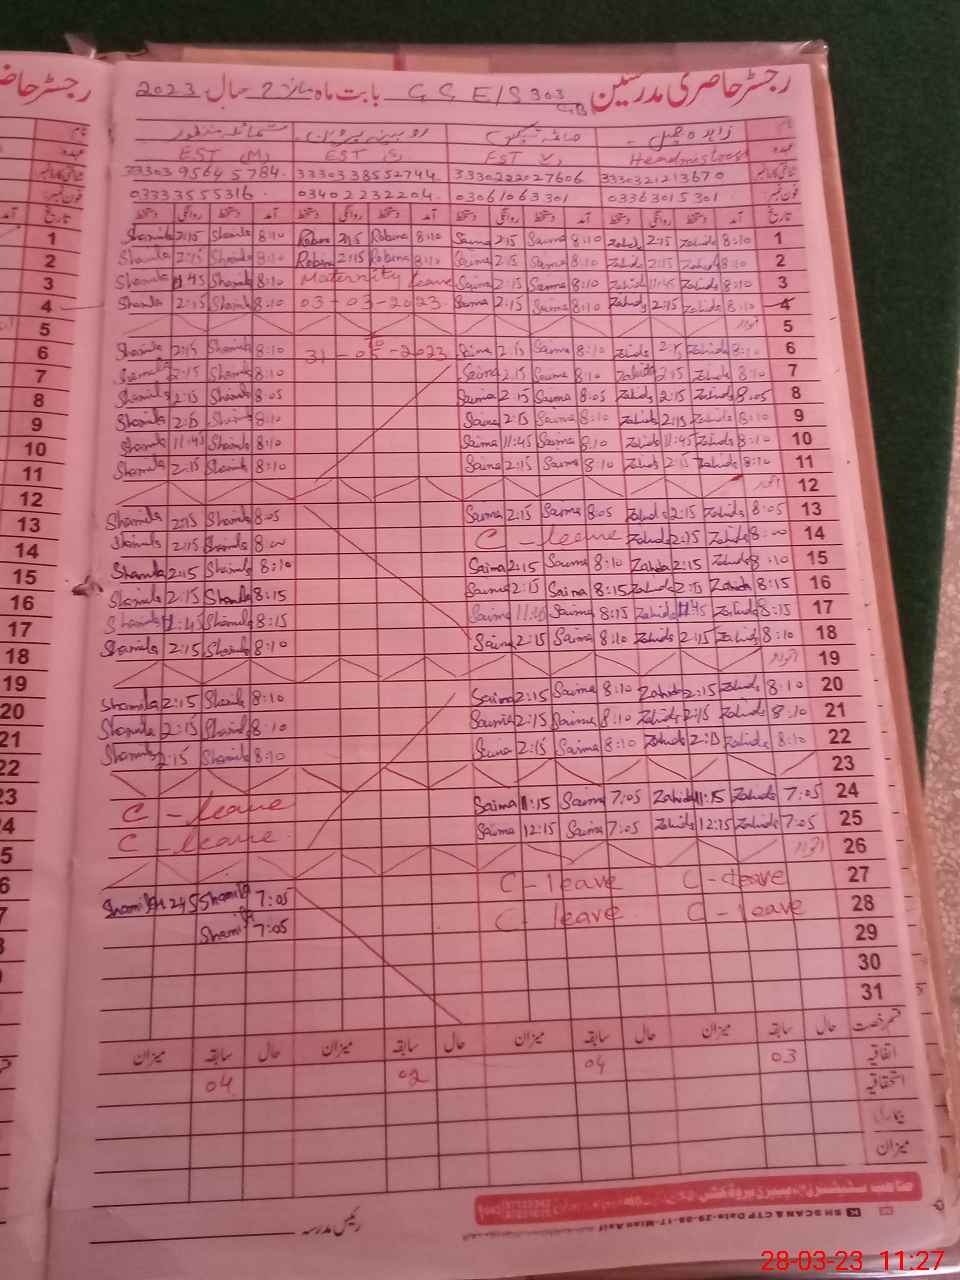 رجسٹر حاضری مدرسین G G E/S 303 GB بابت ماہ مارچ سال 2023
زاہدہ
Headmistress EST (S) EST (M)
3330321213670 3330222027606 3330338552744 3330395645784
03363015301 03061063301 03402232204 03333555316
تاریخ آمد دستخط روانگی دستخط آمد دستخط روانگی دستخط آمد دستخط روانگی دستخط آمد دستخط روانگی دستخط
1 Shamila 2:15 Shamila 8:10 Robina 2:15 Robina 8:10 Saima 2:15 Saima 8:10 Zahida 2:15 Zahida 8:10 1
2 Shamila 2:15 Shamila 8:10 Robina 2:15 Robina 8:10 Saima 2:15 Saima 8:10 Zahida 2:15 Zahida 8:10 2
3 Shamila 11:45 Shamila 8:10 Maternity leave Saima 2:15 Saima 8:10 Zahida 11:45 Zahida 8:10 3
4 Shamila 2:15 Shamila 8:10 03-03-2023 Saima 2:15 Saima 8:10 Zahida 2:15 Zahida 8:10 4
5 To اتوار 5
6 Shamila 2:15 Shamila 8:10 31-05-2023 Saima 2:15 Saima 8:10 Zahida 2:15 Zahida 8:10 6
7 Shamila 2:15 Shamila 8:10 Saima 2:15 Saima 8:10 Zahida 2:15 Zahida 8:10 7
8 Shamila 2:15 Shamila 8:05 Saima 2:15 Saima 8:05 Zahida 2:15 Zahida 8:05 8
9 Shamila 2:15 Shamila 8:10 Saima 2:15 Saima 8:10 Zahida 2:15 Zahida 8:10 9
10 Shamila 11:45 Shamila 8:10 Saima 11:45 Saima 8:10 Zahida 11:45 Zahida 8:10 10
11 Shamila 2:15 Shamila 8:10 Saima 2:15 Saima 8:10 Zahida 2:15 Zahida 8:10 11
12 اتوار 12
13 Shamila 2:15 Shamila 8:05 Saima 2:15 Saima 8:05 Zahida 2:15 Zahida 8:05 13
14 Shamila 2:15 Shamila 8:00 C-leave Zahida 2:15 Zahida 8:00 14
15 Shamila 2:15 Shamila 8:10 Saima 2:15 Saima 8:10 Zahida 2:15 Zahida 8:10 15
16 Shamila 2:15 Shamila 8:15 Saima 2:15 Saima 8:15 Zahida 2:15 Zahida 8:15 16
17 Shamila 11:45 Shamila 8:15 Saima 11:45 Saima 8:15 Zahida 11:45 Zahida 8:15 17
18 Shamila 2:15 Shamila 8:10 Saima 2:15 Saima 8:10 Zahida 2:15 Zahida 8:10 18
19 اتوار 19
20 Shamila 2:15 Shamila 8:10 Saima 2:15 Saima 8:10 Zahida 2:15 Zahida 8:10 20
21 Shamila 2:15 Shamila 8:10 Saima 2:15 Saima 8:10 Zahida 2:15 Zahida 8:10 21
22 Shamila 2:15 Shamila 8:10 Saima 2:15 Saima 8:10 Zahida 2:15 Zahida 8:10 22
23 23
24 C-leave Saima 11:15 Saima 7:05 Zahida 11:15 Zahida 7:05 24
25 C-leave Saima 12:15 Saima 7:05 Zahida 12:15 Zahida 7:05 25
26 اتوار 26
27 Shamila 12:45 Shamila 7:05 C-leave C-leave 27
28 Shamila 7:05 C-leave C-leave 28
29
30
31
قسم رخصت حال سابقہ میزان حال سابقہ میزان حال سابقہ میزان حال سابقہ میزان
اتفاقیہ 03 04 02 04
استحقاقیہ
بیماری
میزان
رئیس مدرسہ
28-03-23 11:27